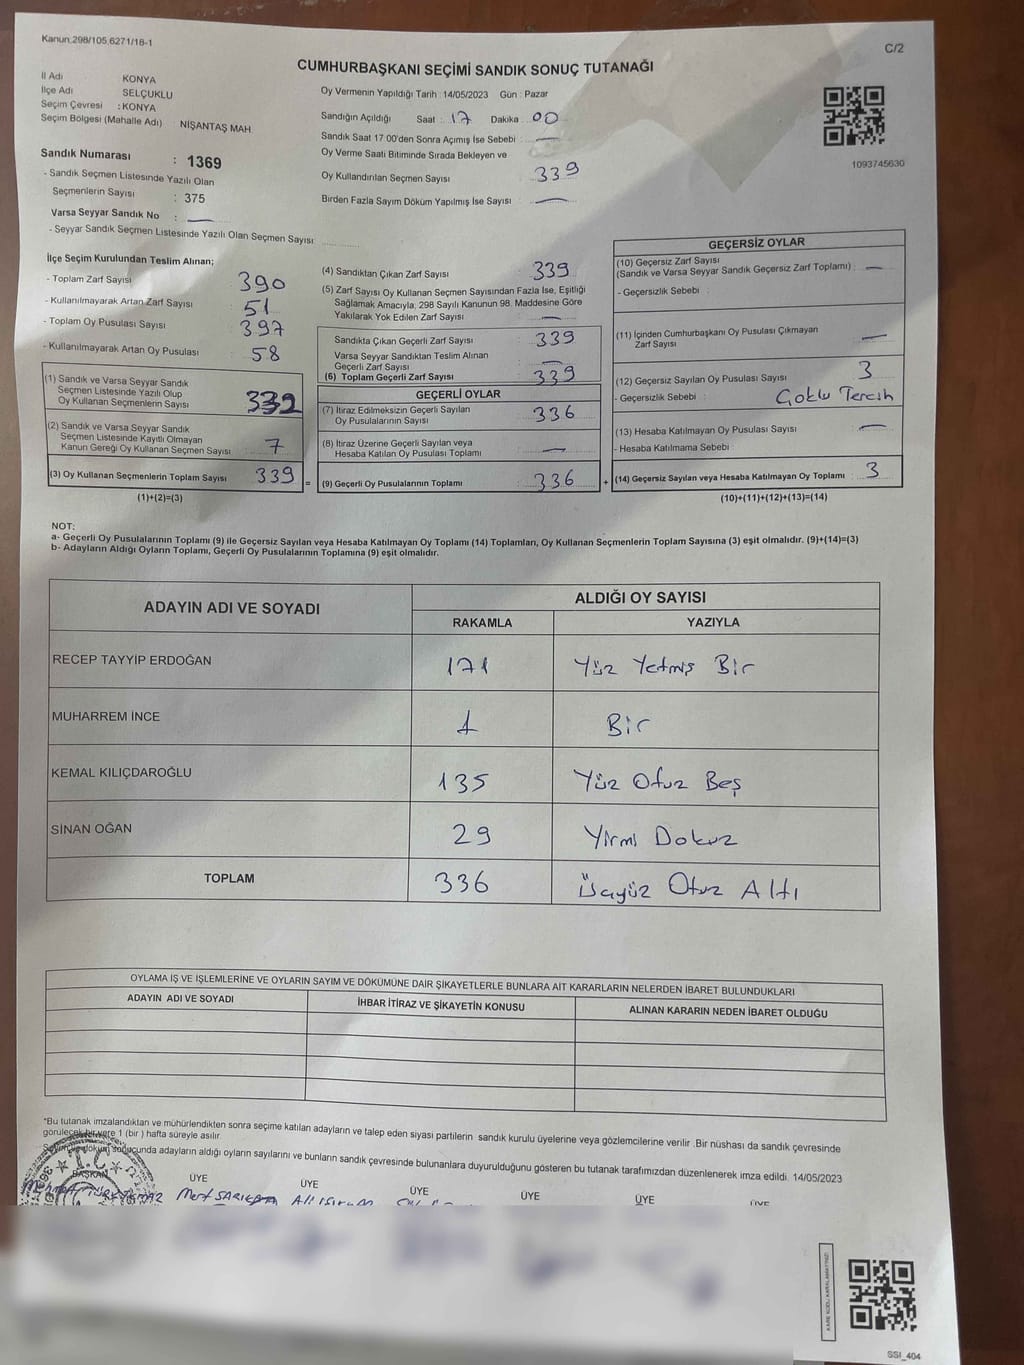 Kanun:298/105,6271/18-1
C/2
CUMHURBAŞKANI SEÇİMİ SANDIK SONUÇ TUTANAĞI
İl Adı KONYA
İlçe Adı SELÇUKLU
Seçim Çevresi : KONYA
Seçim Bölgesi (Mahalle Adı) : NİŞANTAŞ MAH.
Sandık Numarası : 1369
- Sandık Seçmen Listesinde Yazılı Olan
Seçmenlerin Sayısı : 375
Varsa Seyyar Sandık No : —
- Seyyar Sandık Seçmen Listesinde Yazılı Olan Seçmen Sayısı:
Oy Vermenin Yapıldığı Tarih : 14/05/2023 Gün : Pazar
Sandığın Açıldığı Saat : 17 Dakika : 00
Sandık Saat 17:00'den Sonra Açımış İse Sebebi : —
Oy Verme Saati Bitiminde Sırada Bekleyen ve
Oy Kullandırılan Seçmen Sayısı : 339
Birden Fazla Sayım Döküm Yapılmış İse Sayısı : —
1093745630
İlçe Seçim Kurulundan Teslim Alınan;
- Toplam Zarf Sayısı : 390
- Kullanılmayarak Artan Zarf Sayısı : 51
- Toplam Oy Pusulası Sayısı : 397
- Kullanılmayarak Artan Oy Pusulası : 58
(1) Sandık ve Varsa Seyyar Sandık
Seçmen Listesinde Yazılı Olup
Oy Kullanan Seçmenlerin Sayısı : 332
(2) Sandık ve Varsa Seyyar Sandık
Seçmen Listesinde Kayıtlı Olmayan
Kanun Gereği Oy Kullanan Seçmen Sayısı : 7
(3) Oy Kullanan Seçmenlerin Toplam Sayısı : 339 =
(1)+(2)=(3)
(4) Sandıktan Çıkan Zarf Sayısı : 339
(5) Zarf Sayısı Oy Kullanan Seçmen Sayısından Fazla İse, Eşitliği
Sağlamak Amacıyla, 298 Sayılı Kanunun 98. Maddesine Göre
Yakılarak Yok Edilen Zarf Sayısı : —
Sandıkta Çıkan Geçerli Zarf Sayısı : 339
Varsa Seyyar Sandıktan Teslim Alınan
Geçerli Zarf Sayısı : —
(6) Toplam Geçerli Zarf Sayısı : 339
GEÇERLİ OYLAR
(7) İtiraz Edilmeksizin Geçerli Sayılan
Oy Pusulalarının Sayısı : 336
(8) İtiraz Üzerine Geçerli Sayılan veya
Hesaba Katılan Oy Pusulası Toplamı : —
(9) Geçerli Oy Pusulalarının Toplamı : 336 +
GEÇERSİZ OYLAR
(10) Geçersiz Zarf Sayısı
(Sandık ve Varsa Seyyar Sandık Geçersiz Zarf Toplamı) : —
- Geçersizlik Sebebi :
(11) İçinden Cumhurbaşkanı Oy Pusulası Çıkmayan
Zarf Sayısı : —
(12) Geçersiz Sayılan Oy Pusulası Sayısı : 3
- Geçersizlik Sebebi : Çoklu Tercih
(13) Hesaba Katılmayan Oy Pusulası Sayısı : —
- Hesaba Katılmama Sebebi :
(14) Geçersiz Sayılan veya Hesaba Katılmayan Oy Toplamı : 3
(10)+(11)+(12)+(13)=(14)
NOT:
a- Geçerli Oy Pusulalarının Toplamı (9) ile Geçersiz Sayılan veya Hesaba Katılmayan Oy Toplamı (14) Toplamları, Oy Kullanan Seçmenlerin Toplam Sayısına (3) eşit olmalıdır. (9)+(14)=(3)
b- Adayların Aldığı Oyların Toplamı, Geçerli Oy Pusulalarının Toplamına (9) eşit olmalıdır.
ADAYIN ADI VE SOYADI ALDIĞI OY SAYISI
RAKAMLA YAZIYLA
RECEP TAYYİP ERDOĞAN 171 Yüz Yetmiş Bir
MUHARREM İNCE 1 Bir
KEMAL KILIÇDAROĞLU 135 Yüz Otuz Beş
SİNAN OĞAN 29 Yirmi Dokuz
TOPLAM 336 Üçyüz Otuz Altı
OYLAMA İŞ VE İŞLEMLERİNE VE OYLARIN SAYIM VE DÖKÜMÜNE DAİR ŞİKAYETLERLE BUNLARA AİT KARARLARIN NELERDEN İBARET BULUNDUKLARI
ADAYIN ADI VE SOYADI İHBAR İTİRAZ VE ŞİKAYETİN KONUSU ALINAN KARARIN NEDEN İBARET OLDUĞU
*Bu tutanak imzalandıktan ve mühürlendikten sonra seçime katılan adayların ve talep eden siyasi partilerin sandık kurulu üyelerine veya gözlemcilerine verilir .Bir nüshası da sandık çevresinde
görülecek bir yere 1 (bir ) hafta süreyle asılır.
sonucunda adayların aldığı oyların sayılarını ve bunların sandık çevresinde bulunanlara duyurulduğunu gösteren bu tutanak tarafımızdan düzenlenerek imza edildi. 14/05/2023
T.C.
BAŞKAN ÜYE ÜYE ÜYE ÜYE ÜYE ÜYE
Mehmet Mert Ali
KARE KODU KARALAMAYINIZ!
SSI_404